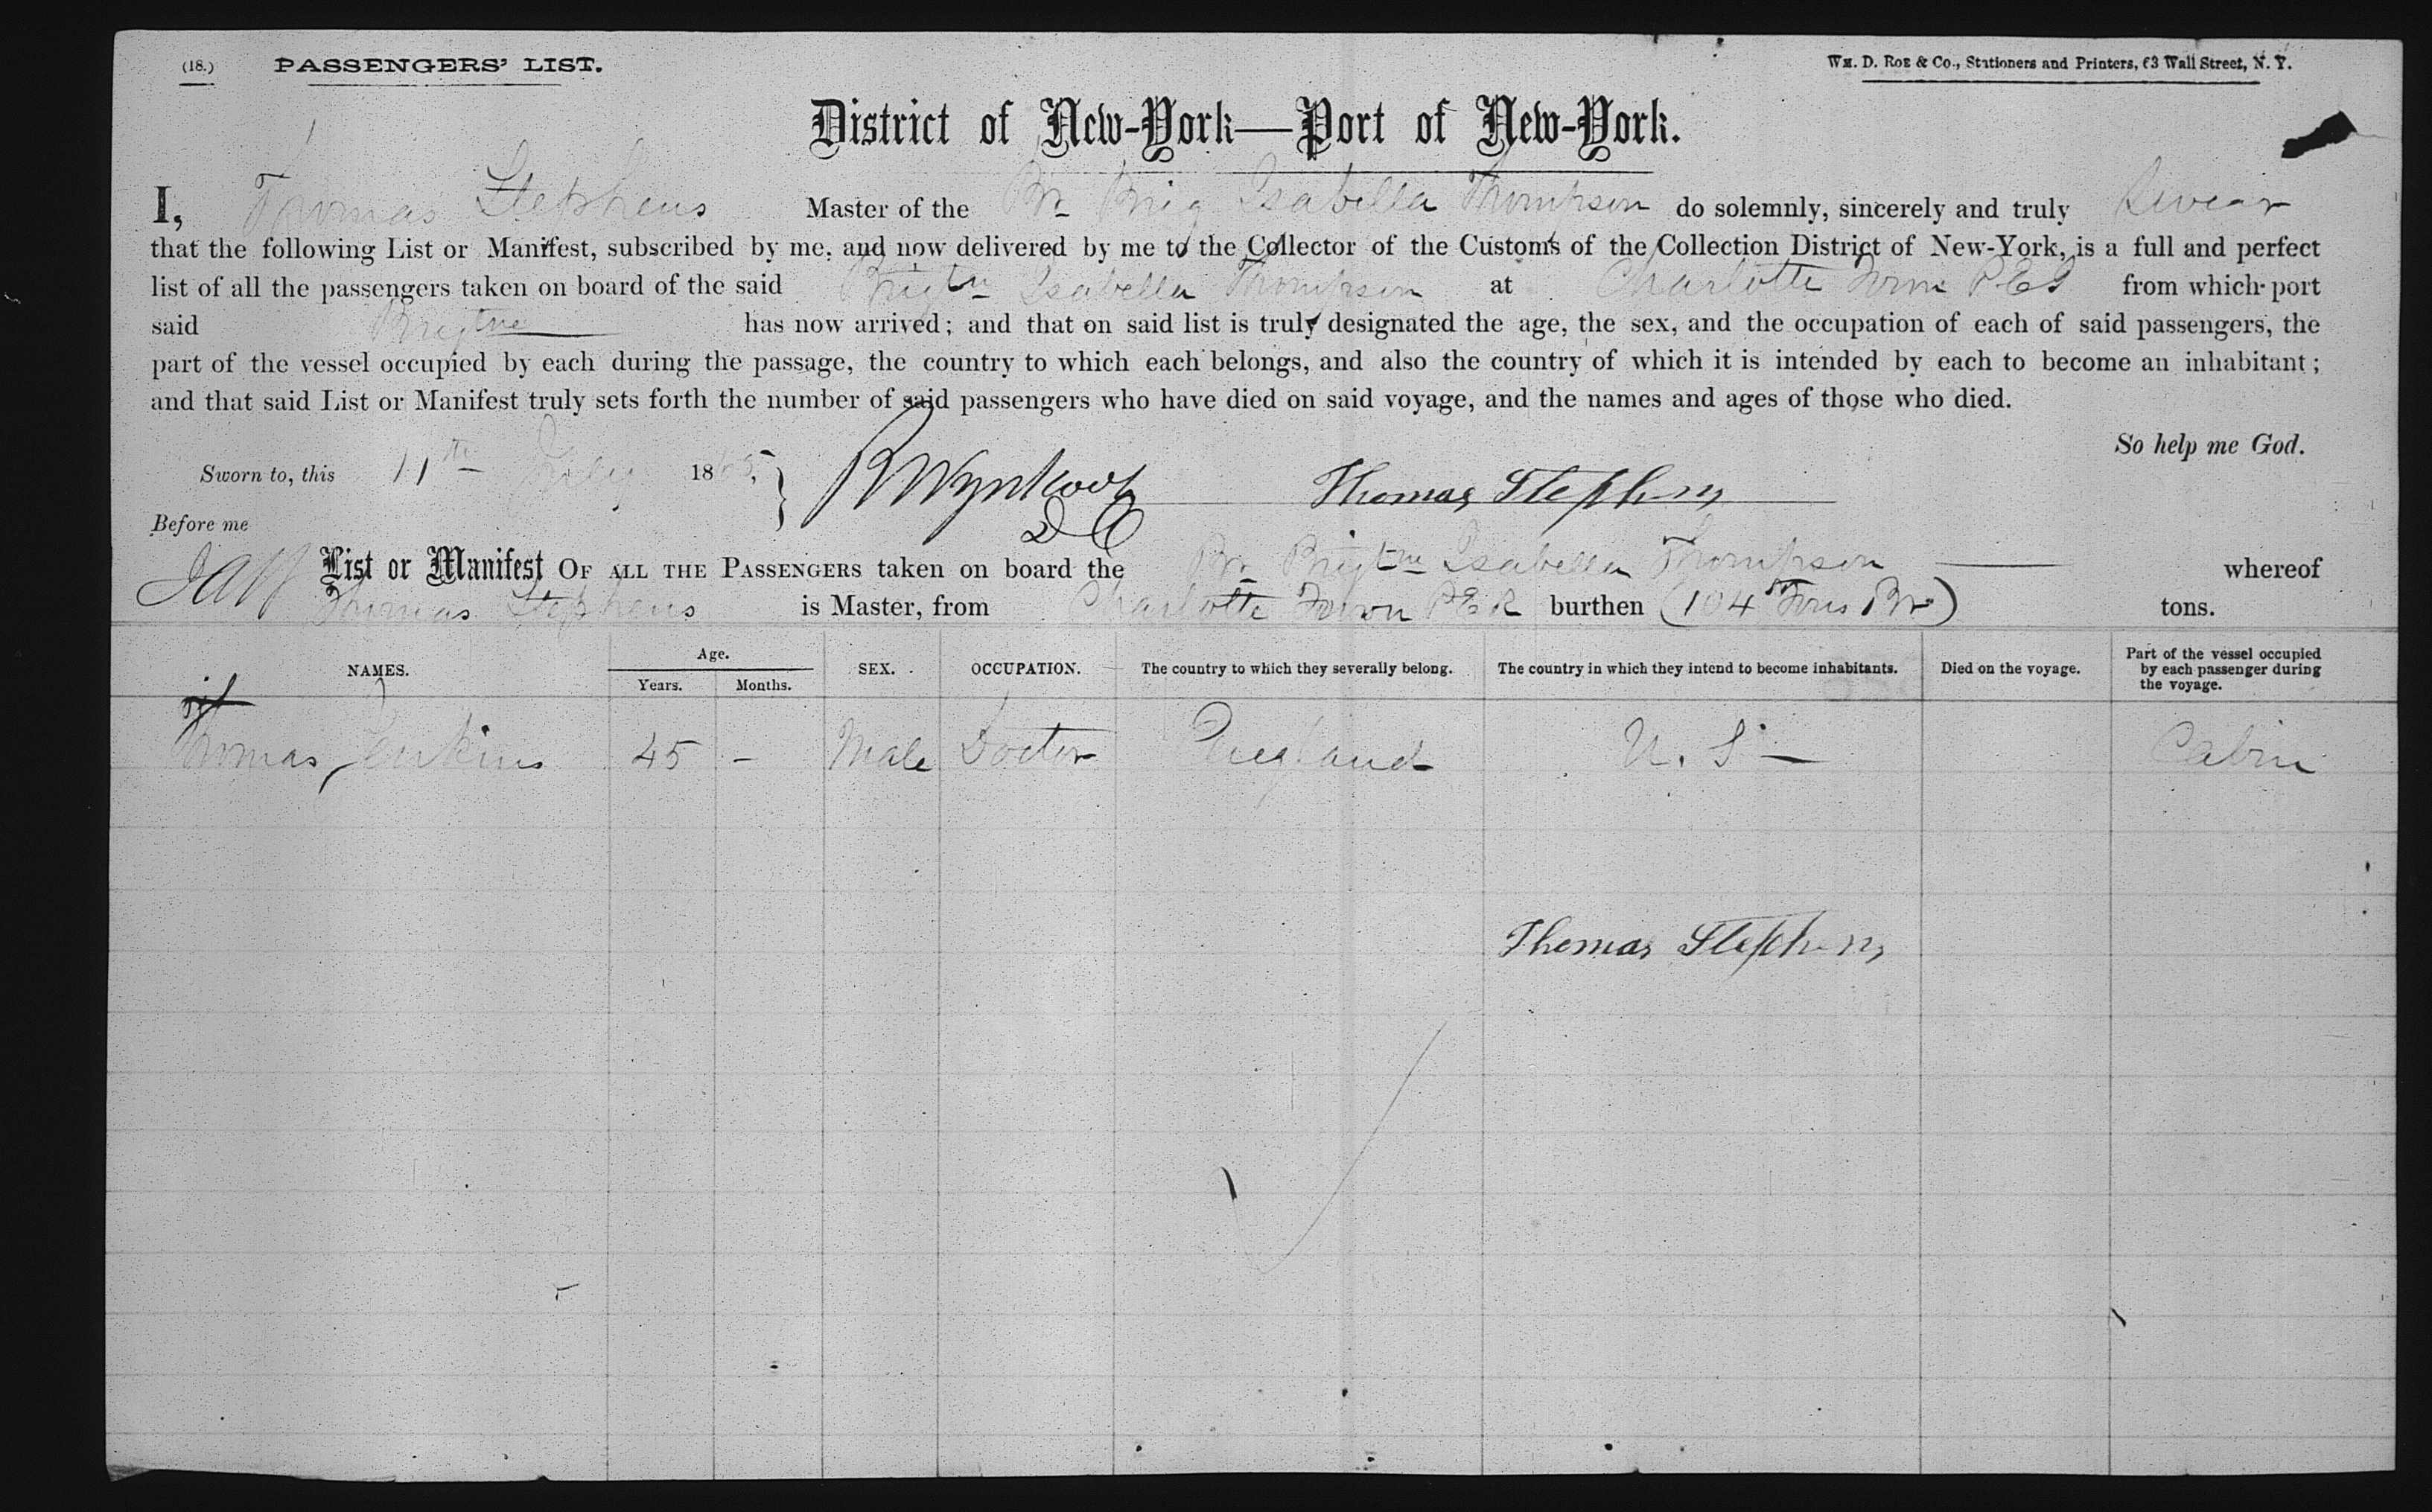 (18.) PASSENGERS' LIST. WM. D. ROE & CO., Stationers and Printers, 63 Wall Street, N. Y.
District of New-York—Port of New-York.
I, Thomas Stephens Master of the Br Brig Isabella Thompson do solemnly, sincerely and truly Swear
that the following List or Manifest, subscribed by me, and now delivered by me to the Collector of the Customs of the Collection District of New-York, is a full and perfect
list of all the passengers taken on board of the said Brigtn Isabella Thompson at Charlotte Town P.E.I from which port
said Brigtne has now arrived; and that on said list is truly designated the age, the sex, and the occupation of each of said passengers, the
part of the vessel occupied by each during the passage, the country to which each belongs, and also the country of which it is intended by each to become an inhabitant;
and that said List or Manifest truly sets forth the number of said passengers who have died on said voyage, and the names and ages of those who died.
So help me God.
Sworn to, this 11th July 1865, Thomas Stephens
Before me
List or Manifest OF ALL THE PASSENGERS taken on board the Br Brigtne Isabella Thompson whereof
Thomas Stephens is Master, from Charlotte Town burthen (104 Tons Br) tons.
NAMES. Age. Years. Months. SEX. OCCUPATION. The country to which they severally belong. The country in which they intend to become inhabitants. Died on the voyage. Part of the vessel occupied by each passenger during the voyage.
Thomas Jenkins 45 - Male Doctor England U. S - Cabin
Thomas Stephens